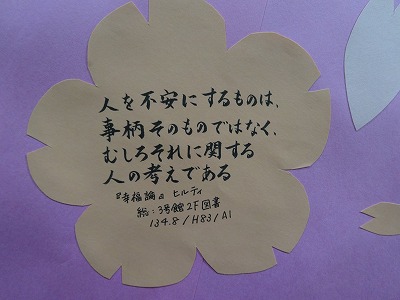 人を不安にするものは、
事柄そのものではなく、
むしろそれに関する
人の考えである
『幸福論』 ヒルティ
総：3号館2F図書
134.8/H83/A1